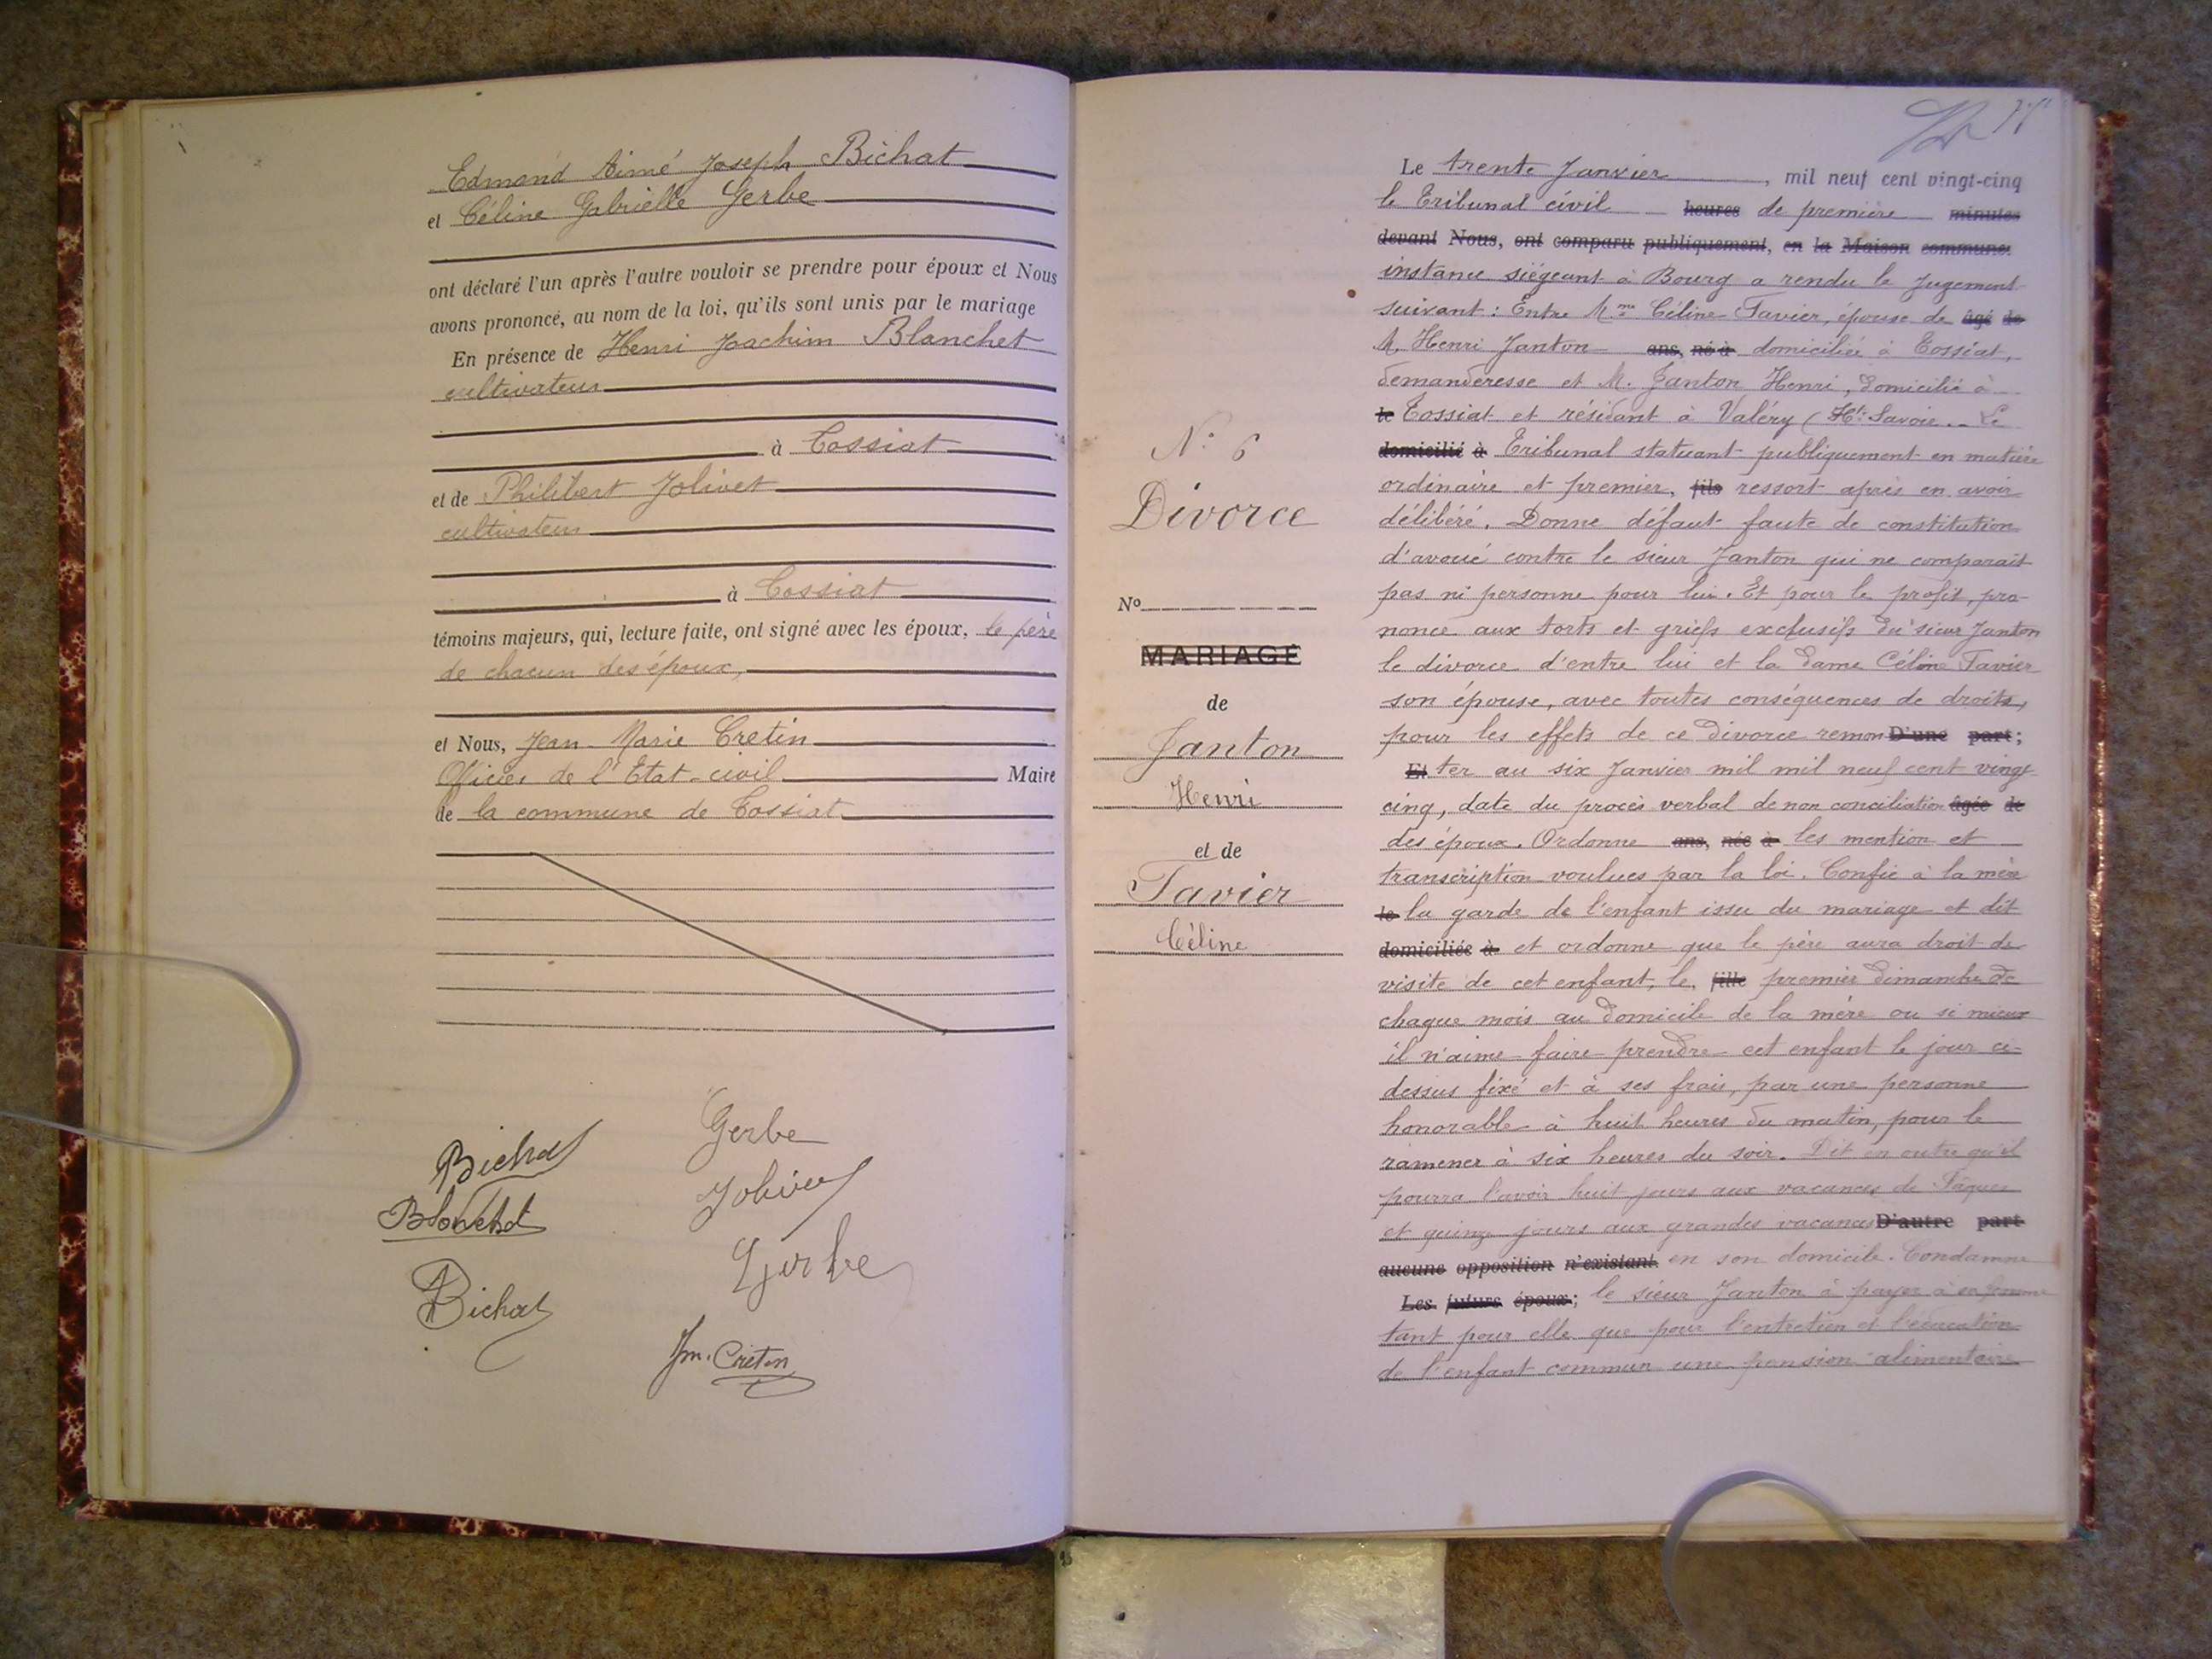 Edmond Aimé Joseph Bichat
et Céline Gabrielle Gerbe
ont déclaré l'un après l'autre vouloir se prendre pour époux et Nous
avons prononcé, au nom de la loi, qu'ils sont unis par le mariage
En présence de Henri Joachim Blanchet
cultivateur
à Tossiat
et de Philibert Jolivet
cultivateur
à Tossiat
témoins majeurs, qui, lecture faite, ont signé avec les époux, le père
de chacun des époux,
et Nous, Jean-Marie Cretin
Officier de l'Etat-civil Maire
de la commune de Tossiat
Bichat
Gerbe
Blanchet
Jolivet
Bichat
Gerbe
Jm. Cretin
N° 6
Divorce
N°
MARIAGE
de
Janton
Henri
et de
Tavier
Céline
Le trente Janvier, mil neuf cent vingt-cinq
le Tribunal civil heures de première minutes
devant Nous, ont comparu publiquement, en la Maison commune:
instance siégeant à Bourg a rendu le jugement
suivant : Entre Mme Céline Tavier, épouse de âgé de
M. Henri Janton ans, né à domiciliée à Tossiat,
demanderesse et M. Janton Henri, domicilié à
le Tossiat et résidant à Valéry (Hte Savoie. Le
domicilié à Tribunal statuant publiquement en matière
ordinaire et premier, fils ressort après en avoir
délibéré. Donne défaut faute de constitution
d'avoué contre le sieur Janton qui ne comparait
pas ni personne pour lui. Et pour le profit, pro-
nonce aux torts et griefs exclusifs du sieur Janton
le divorce d'entre lui et la dame Céline Tavier
son épouse, avec toutes conséquences de droits,
pour les effets de ce divorce remon D'une part;
Et ter au six Janvier mil mil neuf cent vingt-
cinq, date du procès verbal de non conciliation âgée de
des époux. Ordonne ans, née à les mention et
transcription voulues par la loi. Confie à la mère
le la garde de l'enfant issu du mariage et dit
domiciliée à et ordonne que le père aura droit de
visite de cet enfant, le, fille premier dimanche de
chaque mois au domicile de la mère ou si mieux
il n'aime faire prendre cet enfant le jour ci-
dessus fixé et à ses frais, par une personne
honorable à huit heures du matin, pour le
ramener à six heures du soir. Dit en outre qu'il
pourra l'avoir huit jours aux vacances de Pâques
et quinze jours aux grandes vacances D'autre part
aucune opposition n'existant en son domicile. Condamne
Les futurs époux; le sieur Janton à payer à sa femme
tant pour elle que pour l'entretien et l'éducation
de l'enfant commun une pension alimentaire